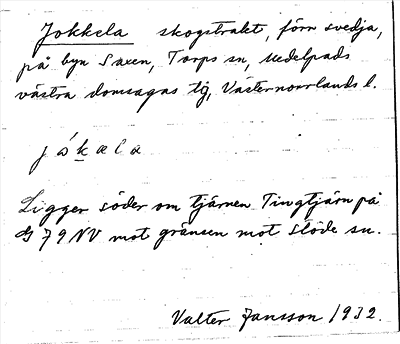 Jokkela skogstrakt, förr svedja,
på byn Saxen, Torps sn, Medelpads
västra domsagas tg, Västernorrlands l.
Ligger söder om tjärnen Tingtjärn på
G 79 NV mot gränsen mot Stöde sn.
Valter Jansson 1932.